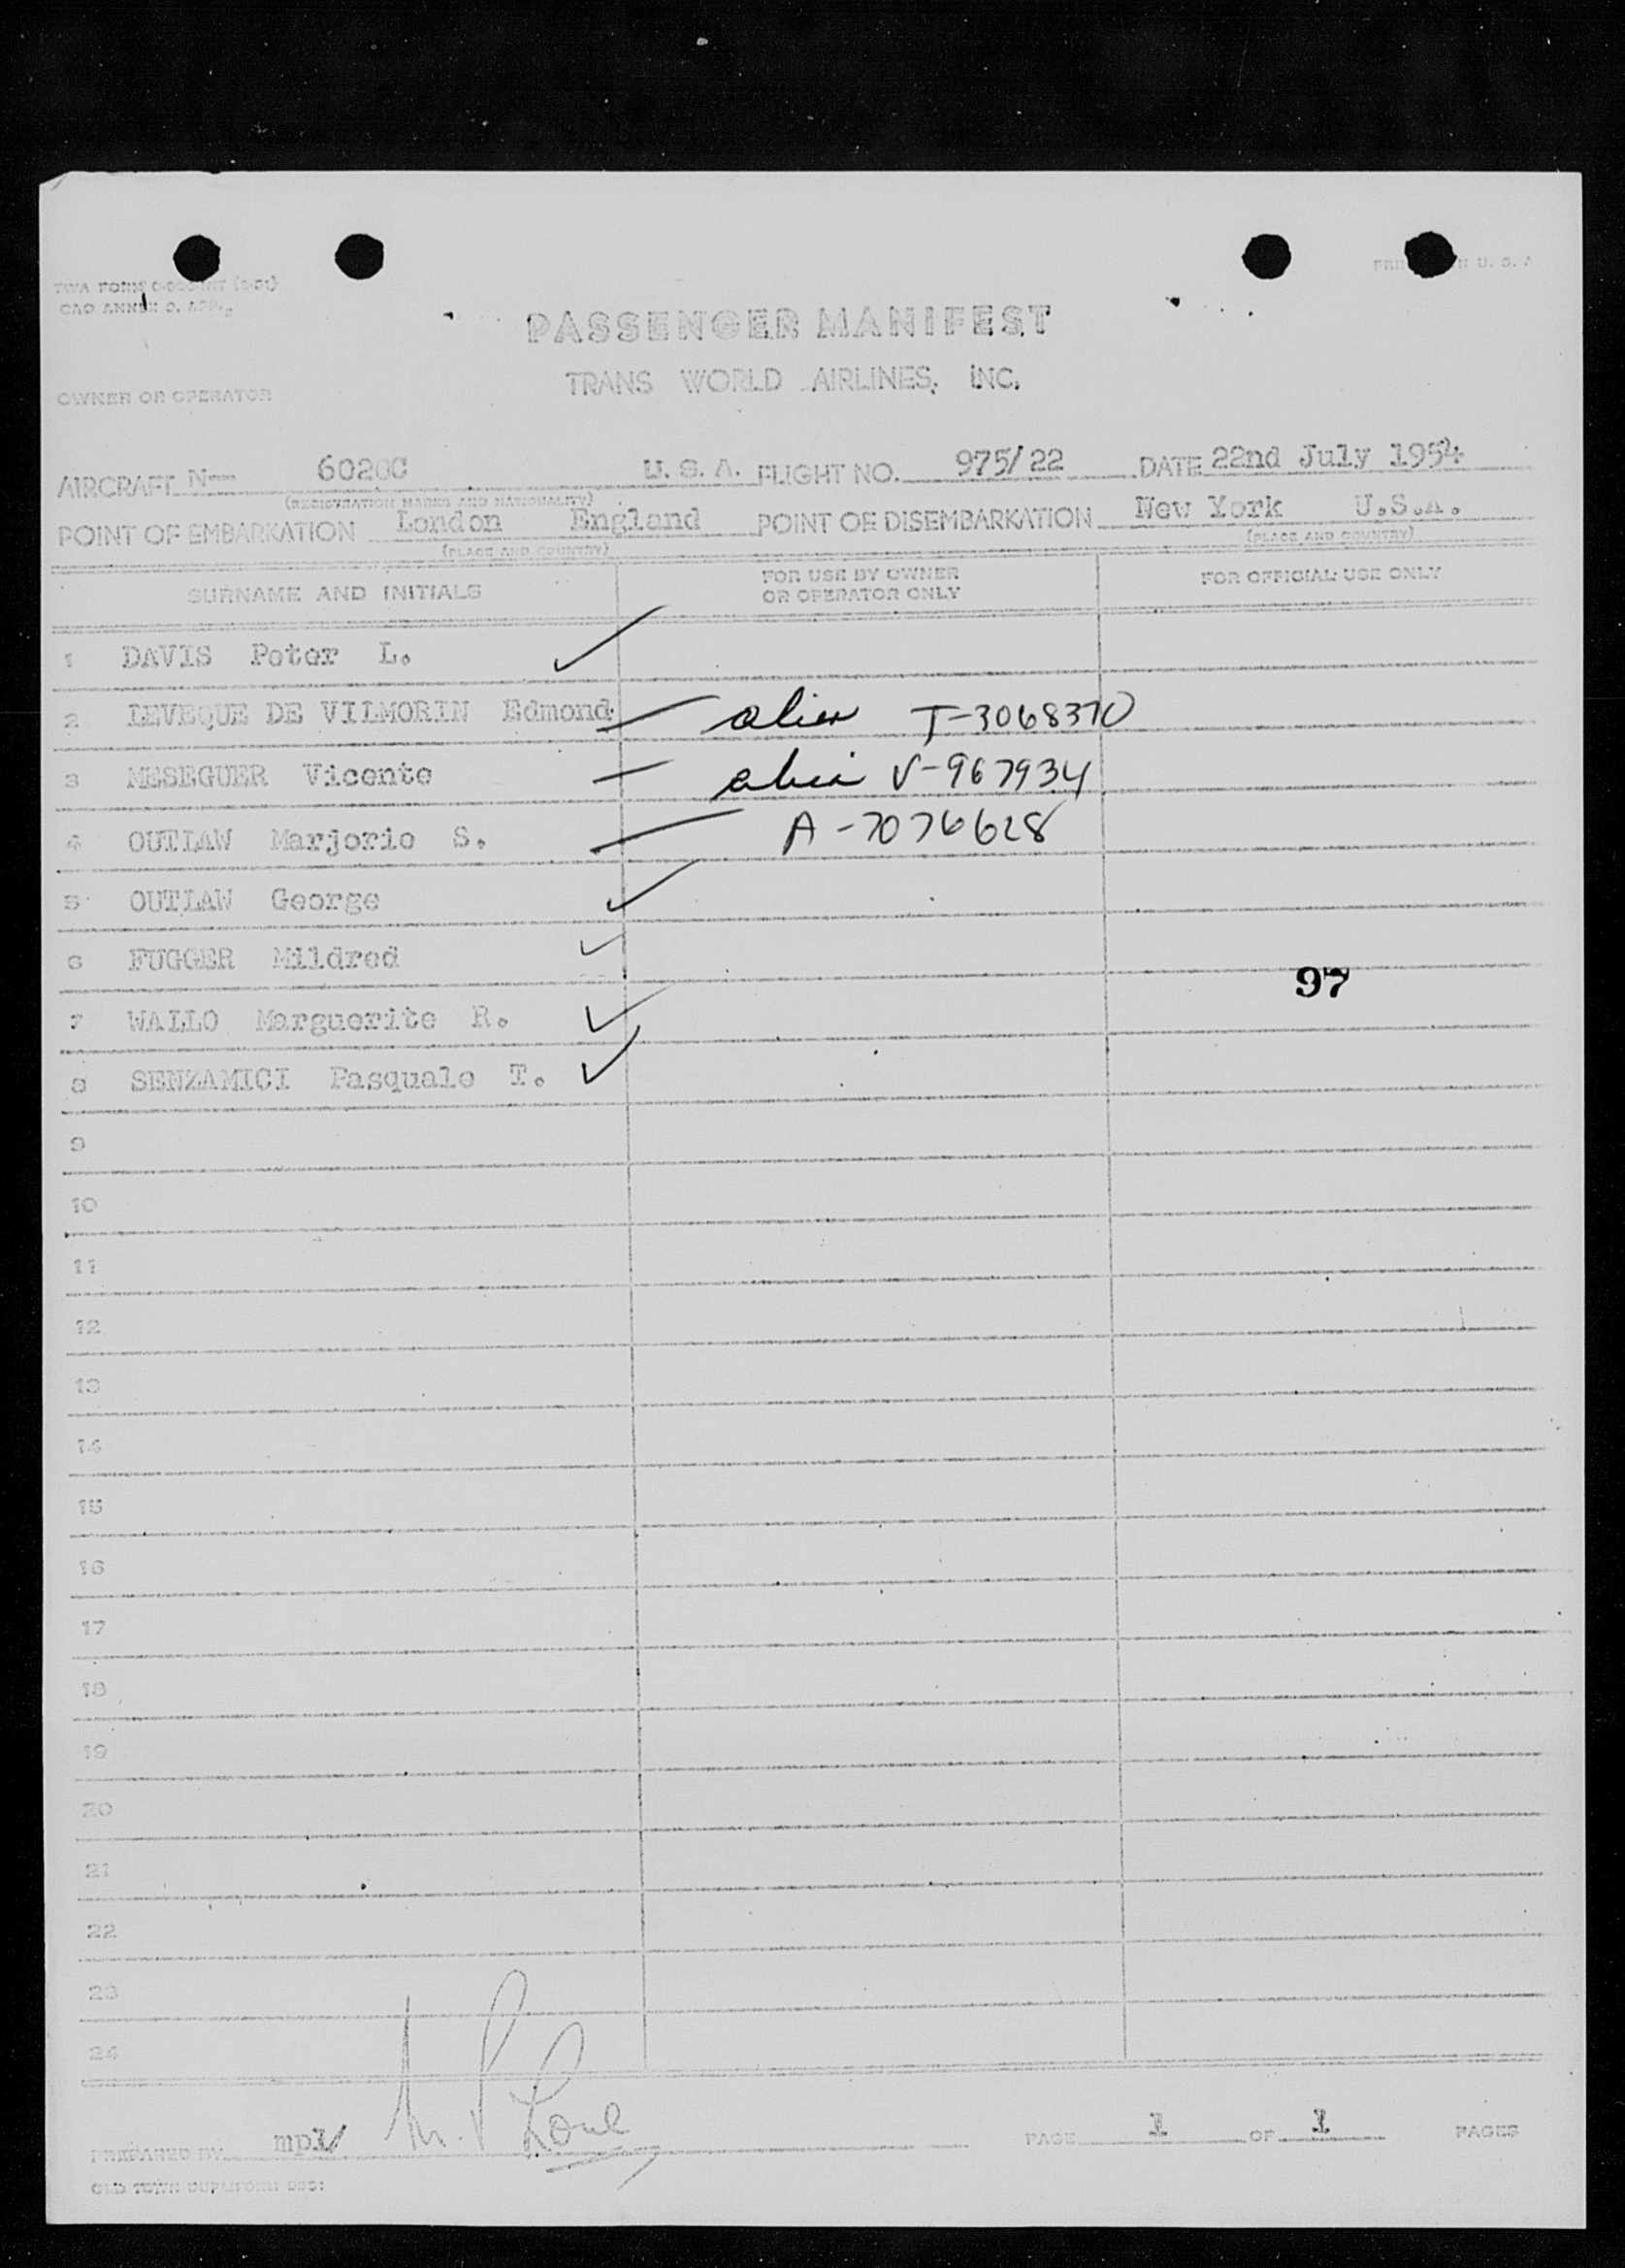 PRINTED IN U. S. A
TWA FORM
CAO ANNEX 9, APP.
PASSENGER MANIFEST
TRANS WORLD AIRLINES, INC.
OWNER OR OPERATOR
AIRCRAFT N-- 6020C U. S. A. FLIGHT NO. 975/22 DATE 22nd July 1954
(REGISTRATION MARKS AND NATIONALITY)
POINT OF EMBARKATION London England POINT OF DISEMBARKATION New York U.S.A.
(PLACE AND COUNTRY) (PLACE AND COUNTRY)
SURNAME AND INITIALS FOR USE BY OWNER OR OPERATOR ONLY FOR OFFICIAL USE ONLY
1 DAVIS Peter L. ✓
2 LEVEQUE DE VILMORIN Edmond — alien T-3068370
3 MESEGUER Vicente — alien V-967934
4 OUTLAW Marjorie S. — A-7076628
5 OUTLAW George ✓
6 FUGGER Mildred ✓
97
7 WALLO Marguerite R. ✓
8 SENZAMICI Pasquale T. ✓
9
10
11
12
13
14
15
16
17
18
19
20
21
22
23
24
PREPARED BY mpl/ M. P. Lone PAGE 1 OF 1 PAGES
OLD TOWN DUPLIFORM